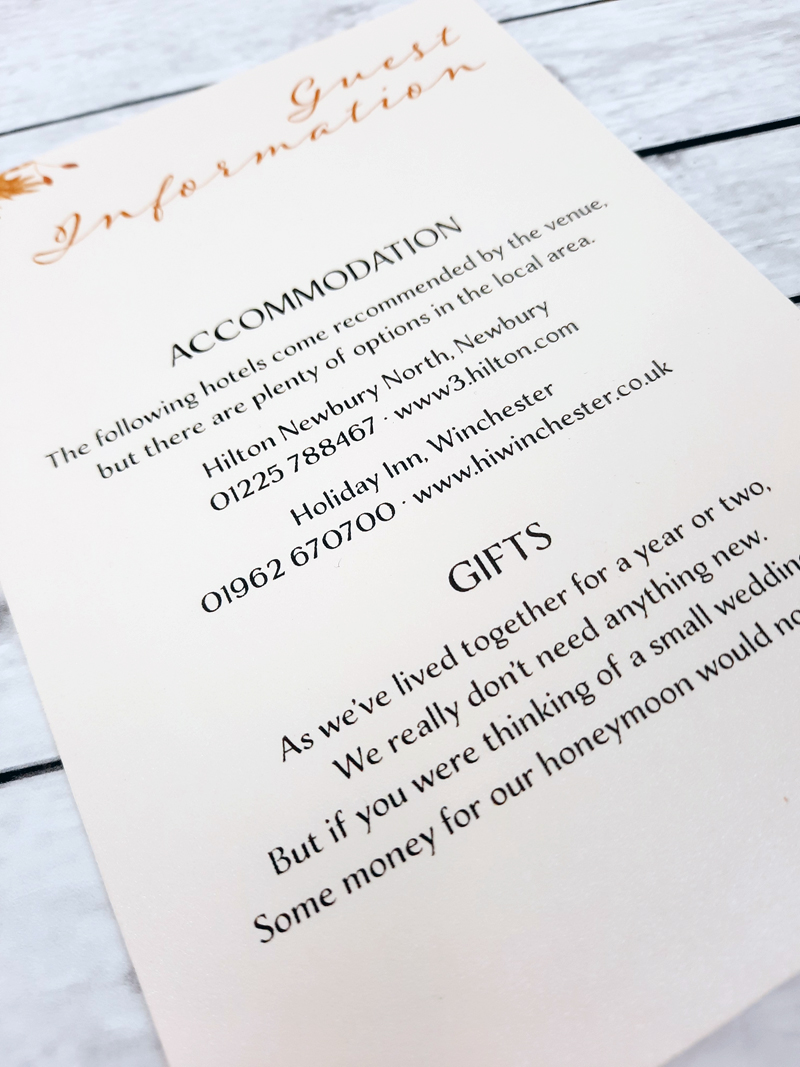 Guest
Information
ACCOMMODATION
The following hotels come recommended by the venue,
but there are plenty of options in the local area.
Hilton Newbury North, Newbury
01225 788467 · www3.hilton.com
Holiday Inn, Winchester
01962 670700 · www.hiwinchester.co.uk
GIFTS
As we've lived together for a year or two,
We really don't need anything new.
But if you were thinking of a small
Some money for our honeymoon would